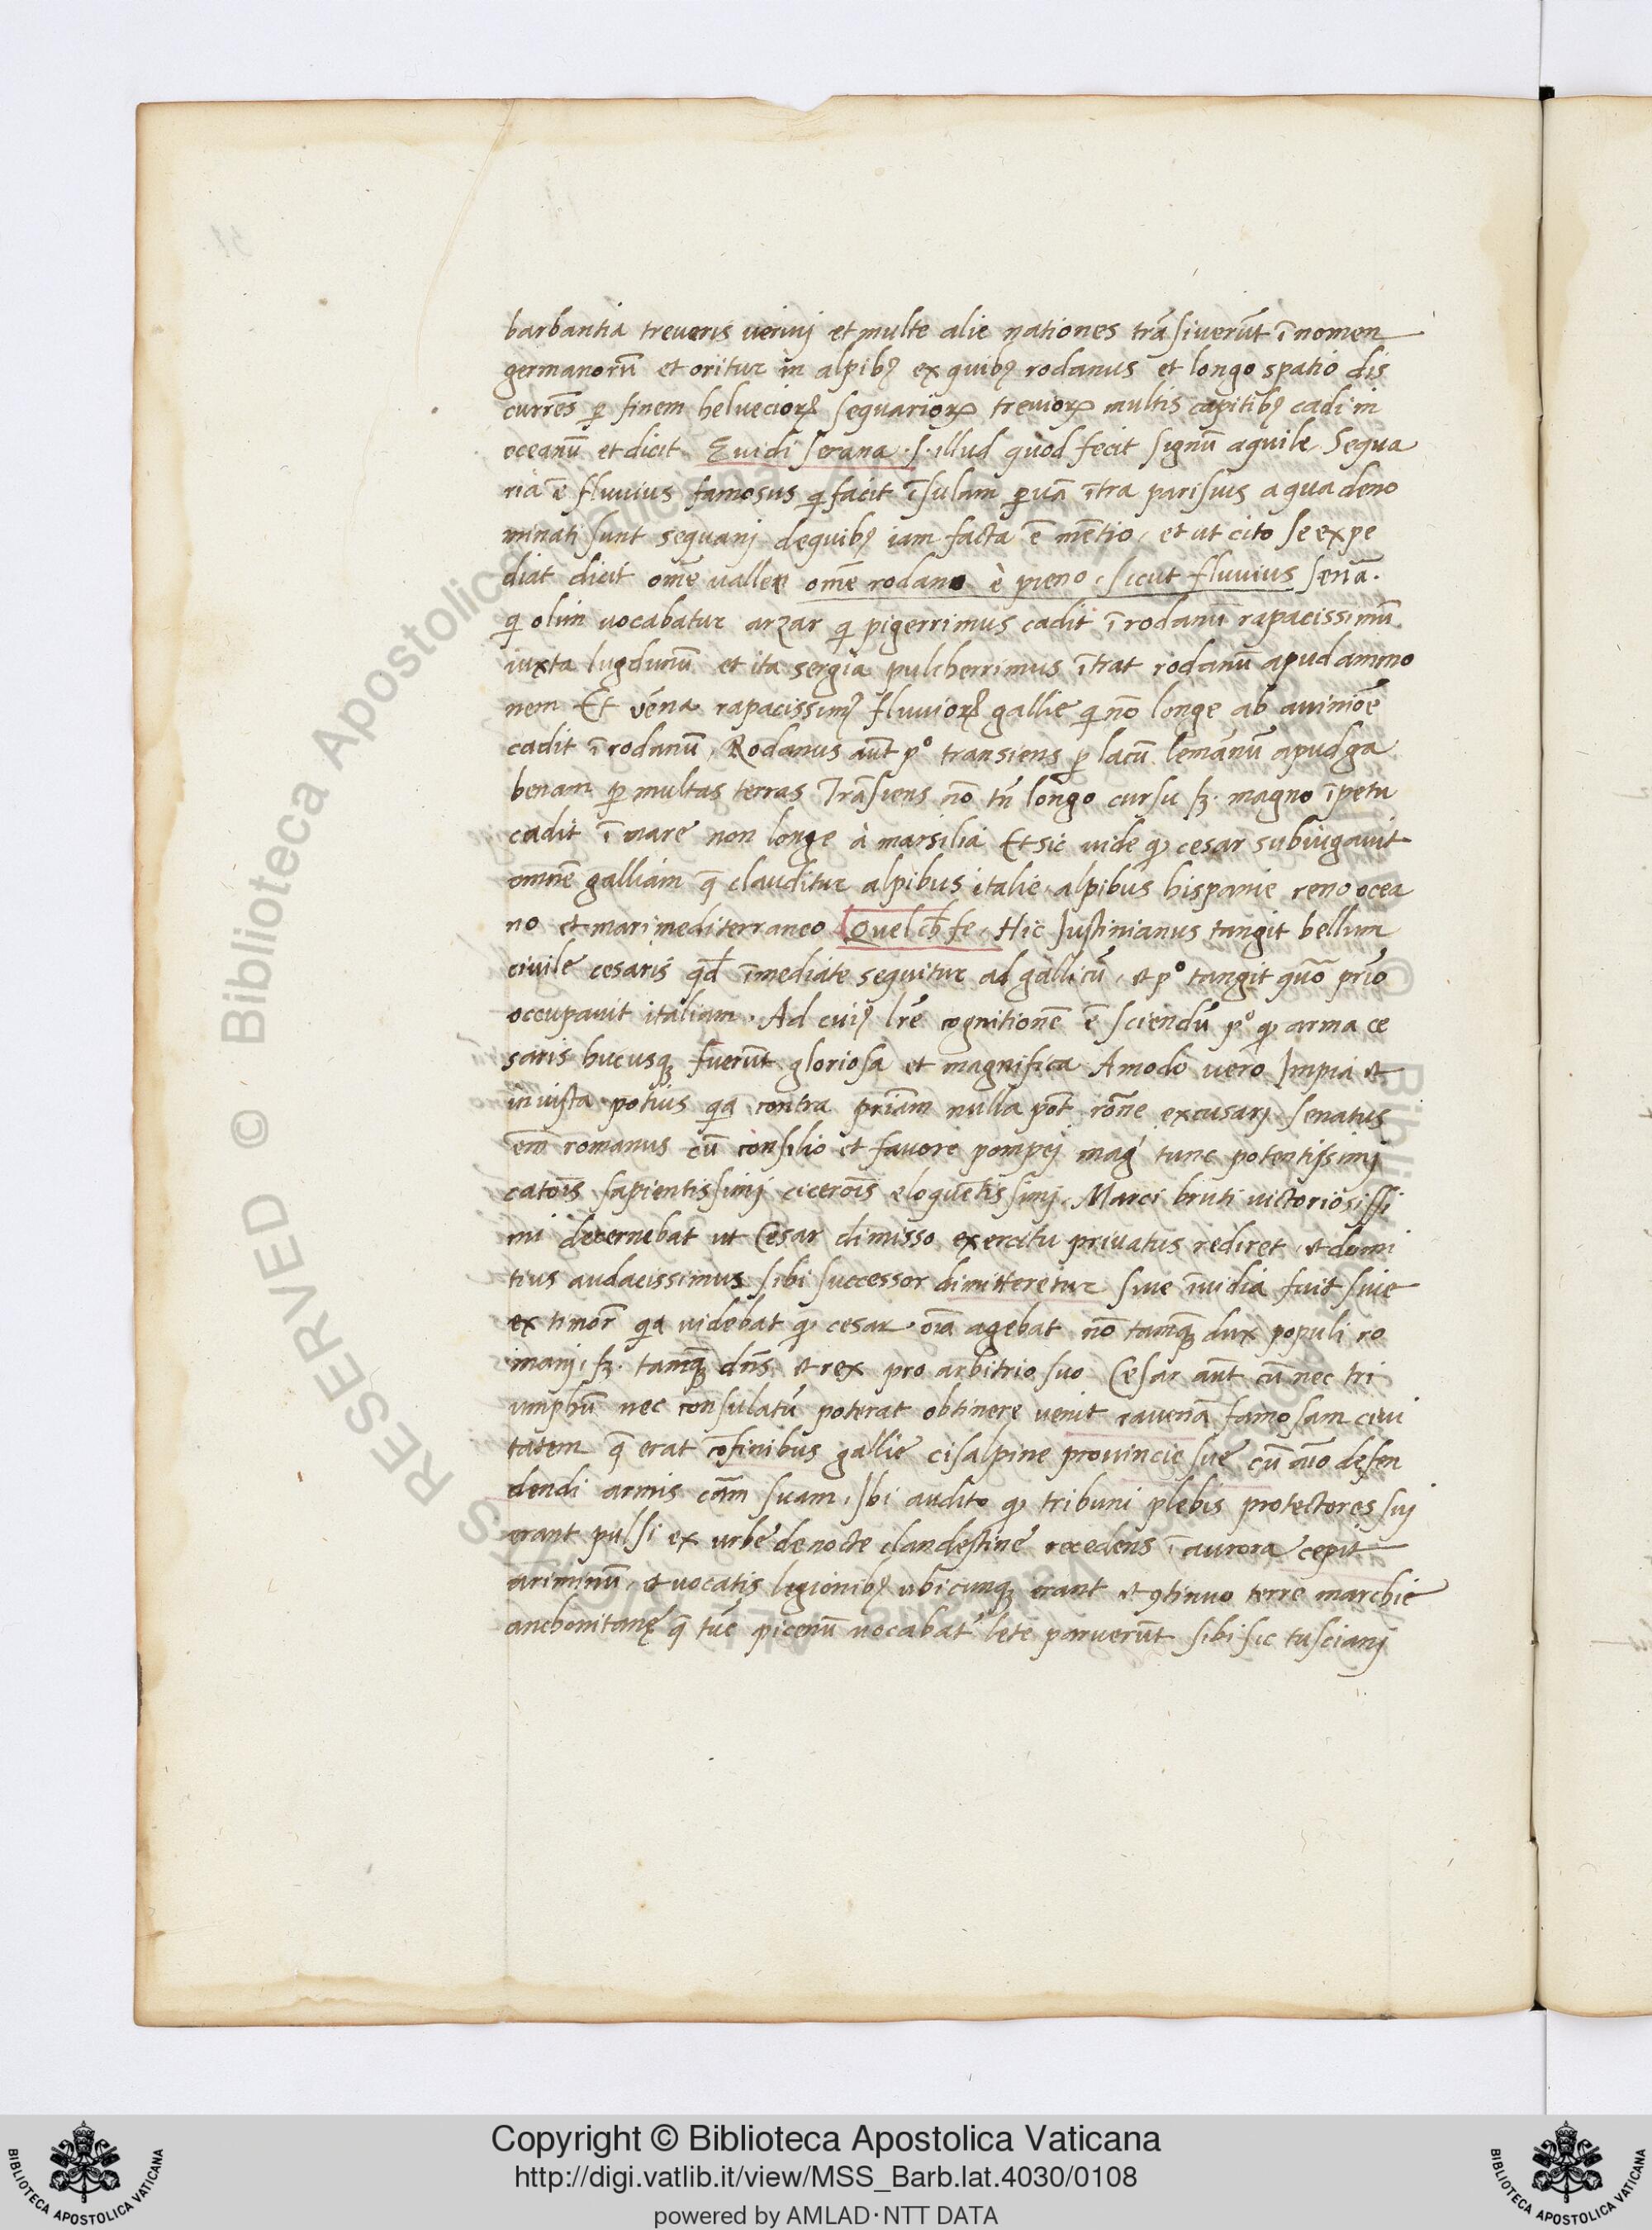 barbantia treveris verinj et multe alie nationes trāsiverūt ī nomen
germanorū et oritur in alpibꝰ ex quibꝰ rodanus et longo spatio dis
currēs ꝑ finem helveciorꝝ sequariorꝝ treviorꝝ multis capitibꝰ cadi in
oceanū et dicit Evidi serana .s. illud quod fecit signū aquile Sequa
ria ē fluvius famosus qi facit īsulam ꝑuā ītra parisius a qua deno
minati sunt sequanj de quibꝰ iam facta ē mētio, et ut cito se expe
diat dicit omē valler omē rodano è pieno, sicut fluvius senā.
qi olim vocabatur arzar qi pigerrimus cadit ī rodanū rapacissimū
iuxta lugdunū et ita sergia pulcherrimus ītrat rodanū apud ammo
nem Et vēna rapacissimꝰ fluviorꝝ gallie qi nō longe ab avinioē
cadit ī rodanū, Rodanus aūt pº transiens ꝑ lacū lemanū apud ga
benam ꝑ multas terras Trāsiens nō tn̄ longo cursu sꝫ. magno īpetu
cadit ī mare non longe à marsilia Et sic vide qꝫ cesar subiugavit
omnē galliam q̄ clauditur alpibus italie alpibus hispanie reno ocea
no et mari mediterraneo Quel ch̄ fe. Hic Justinianus tangit bellum
civile cesaris qd̄ īmediate sequitur ad gallicū, et pº tangit quō prīo
occupavit italiam. Ad cuiꝰ lr̄e cognitionē ē sciendū pº qꝫ arma ce
saris hucusqꝫ fuerūt gloriosa et magnifica Amodo vero Impia et
iniusta potius qia contra prīam nulla pōt rōne excusarj senatus
em̄ romanus cū consilio et favore pompej mag' tunc potentissimj
catōis sapientissimj cicerōis eloquētissimj. Marci bruti victoriosissi
mi decernebat ut Cesar dimisso exercitu privatus rediret, et domi
tius audacissimus sibi successor dimitteretur sive īvidia fuit sive
ex timor̄ qia videbat qꝫ cesar oīa agebat nō tamqꝫ dux populi ro
manj, sꝫ. tamqꝫ dn̄s, et rex pro arbitrio suo Cesar aūt cū nec tri
umphū nec consulatū poterat obtinere venit ravenā famosam civi
tatem q̄ erat cōfinibus gallie cisalpine provincie sue cū aīo defen
dendi armis cām suam, Ibi audito qꝫ tribuni plebis protectores sui
erant pulsi ex urbe de nocte clandestine recedens ī aurora cepit
ariminū, et vocatis legionibꝰ ubicunqꝫ erant et ꝯtinuo terre marchie
anchonitanę q̄ tūc picenū vocabat' lete paruerūt sibi sic tuscianj
Copyright © Biblioteca Apostolica Vaticana
http://digi.vatlib.it/view/MSS_Barb.lat.4030/0108
powered by AMLAD·NTT DATA